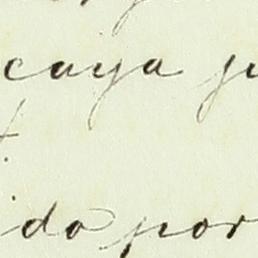 cuya
do por